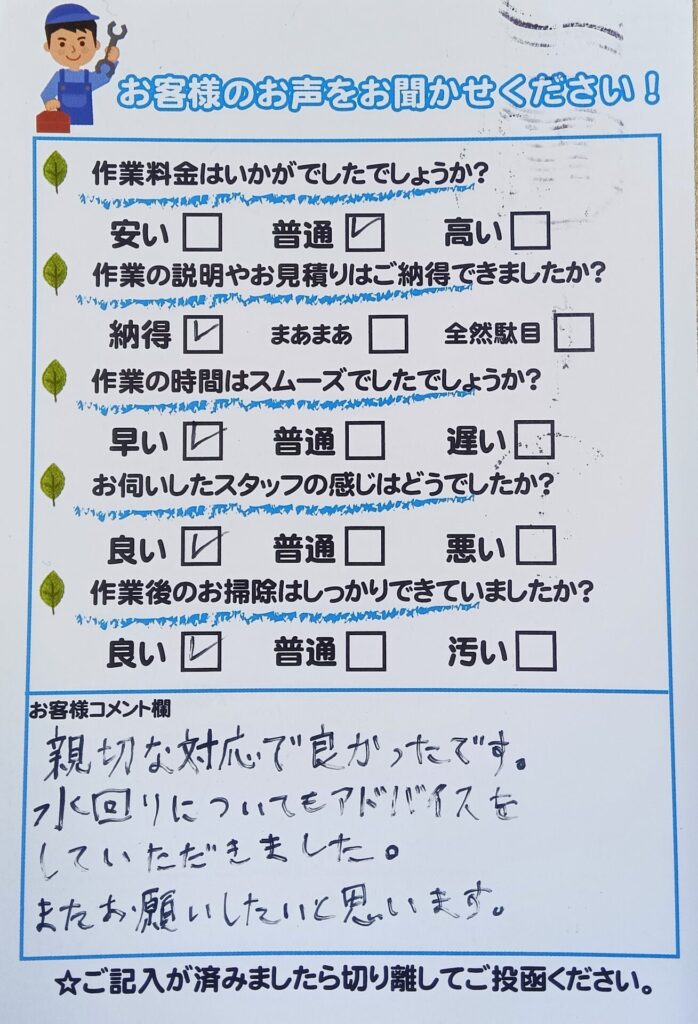 お客様のお声をお聞かせください！
作業料金はいかがでしたでしょうか？
安い □ 普通 ☑ 高い □
作業の説明やお見積りはご納得できましたか？
納得 ☑ まあまあ □ 全然駄目 □
作業の時間はスムーズでしたでしょうか？
早い ☑ 普通 □ 遅い □
お伺いしたスタッフの感じはどうでしたか？
良い ☑ 普通 □ 悪い □
作業後のお掃除はしっかりできていましたか？
良い ☑ 普通 □ 汚い □
お客様コメント欄
親切な対応で良かったです。
水回りについてもアドバイスを
していただきました。
またお願いしたいと思います。
☆ご記入が済みましたら切り離してご投函ください。